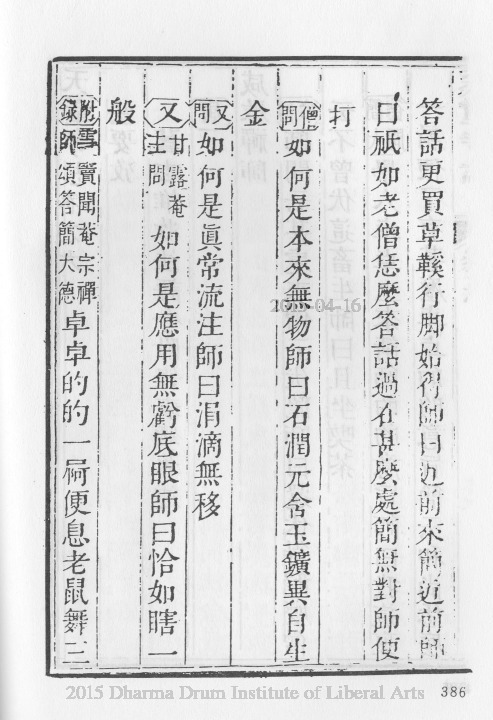 答話更買草鞵行脚始得師曰近前來簡近前師
曰祇如老僧恁麼答話過在甚麼處簡無對師便
打
僧問如何是本來無物師曰石潤元含玉鑛異自生
金
又問如何是眞常流注師曰涓滴無移
又甘露菴主問如何是應用無虧底眼師曰恰如瞎一
般
附雪竇聞菴宗禪
録師頌答簡大德卓卓的的一屙便息老鼠舞三
2015-04-16
2015 Dharma Drum Institute of Liberal Arts
386